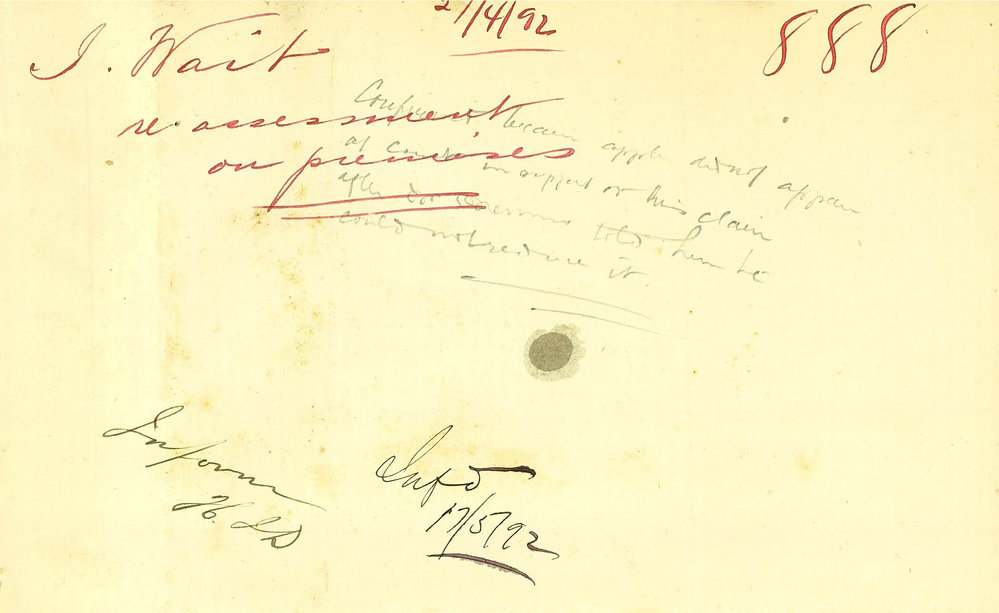 27/4/92
888
I. Wait
re assessment
on premises
Confirmed because applt did not appear
at Court in support of his claim
after told him he
could not reduce it.
Inform
Infd
17/5/92